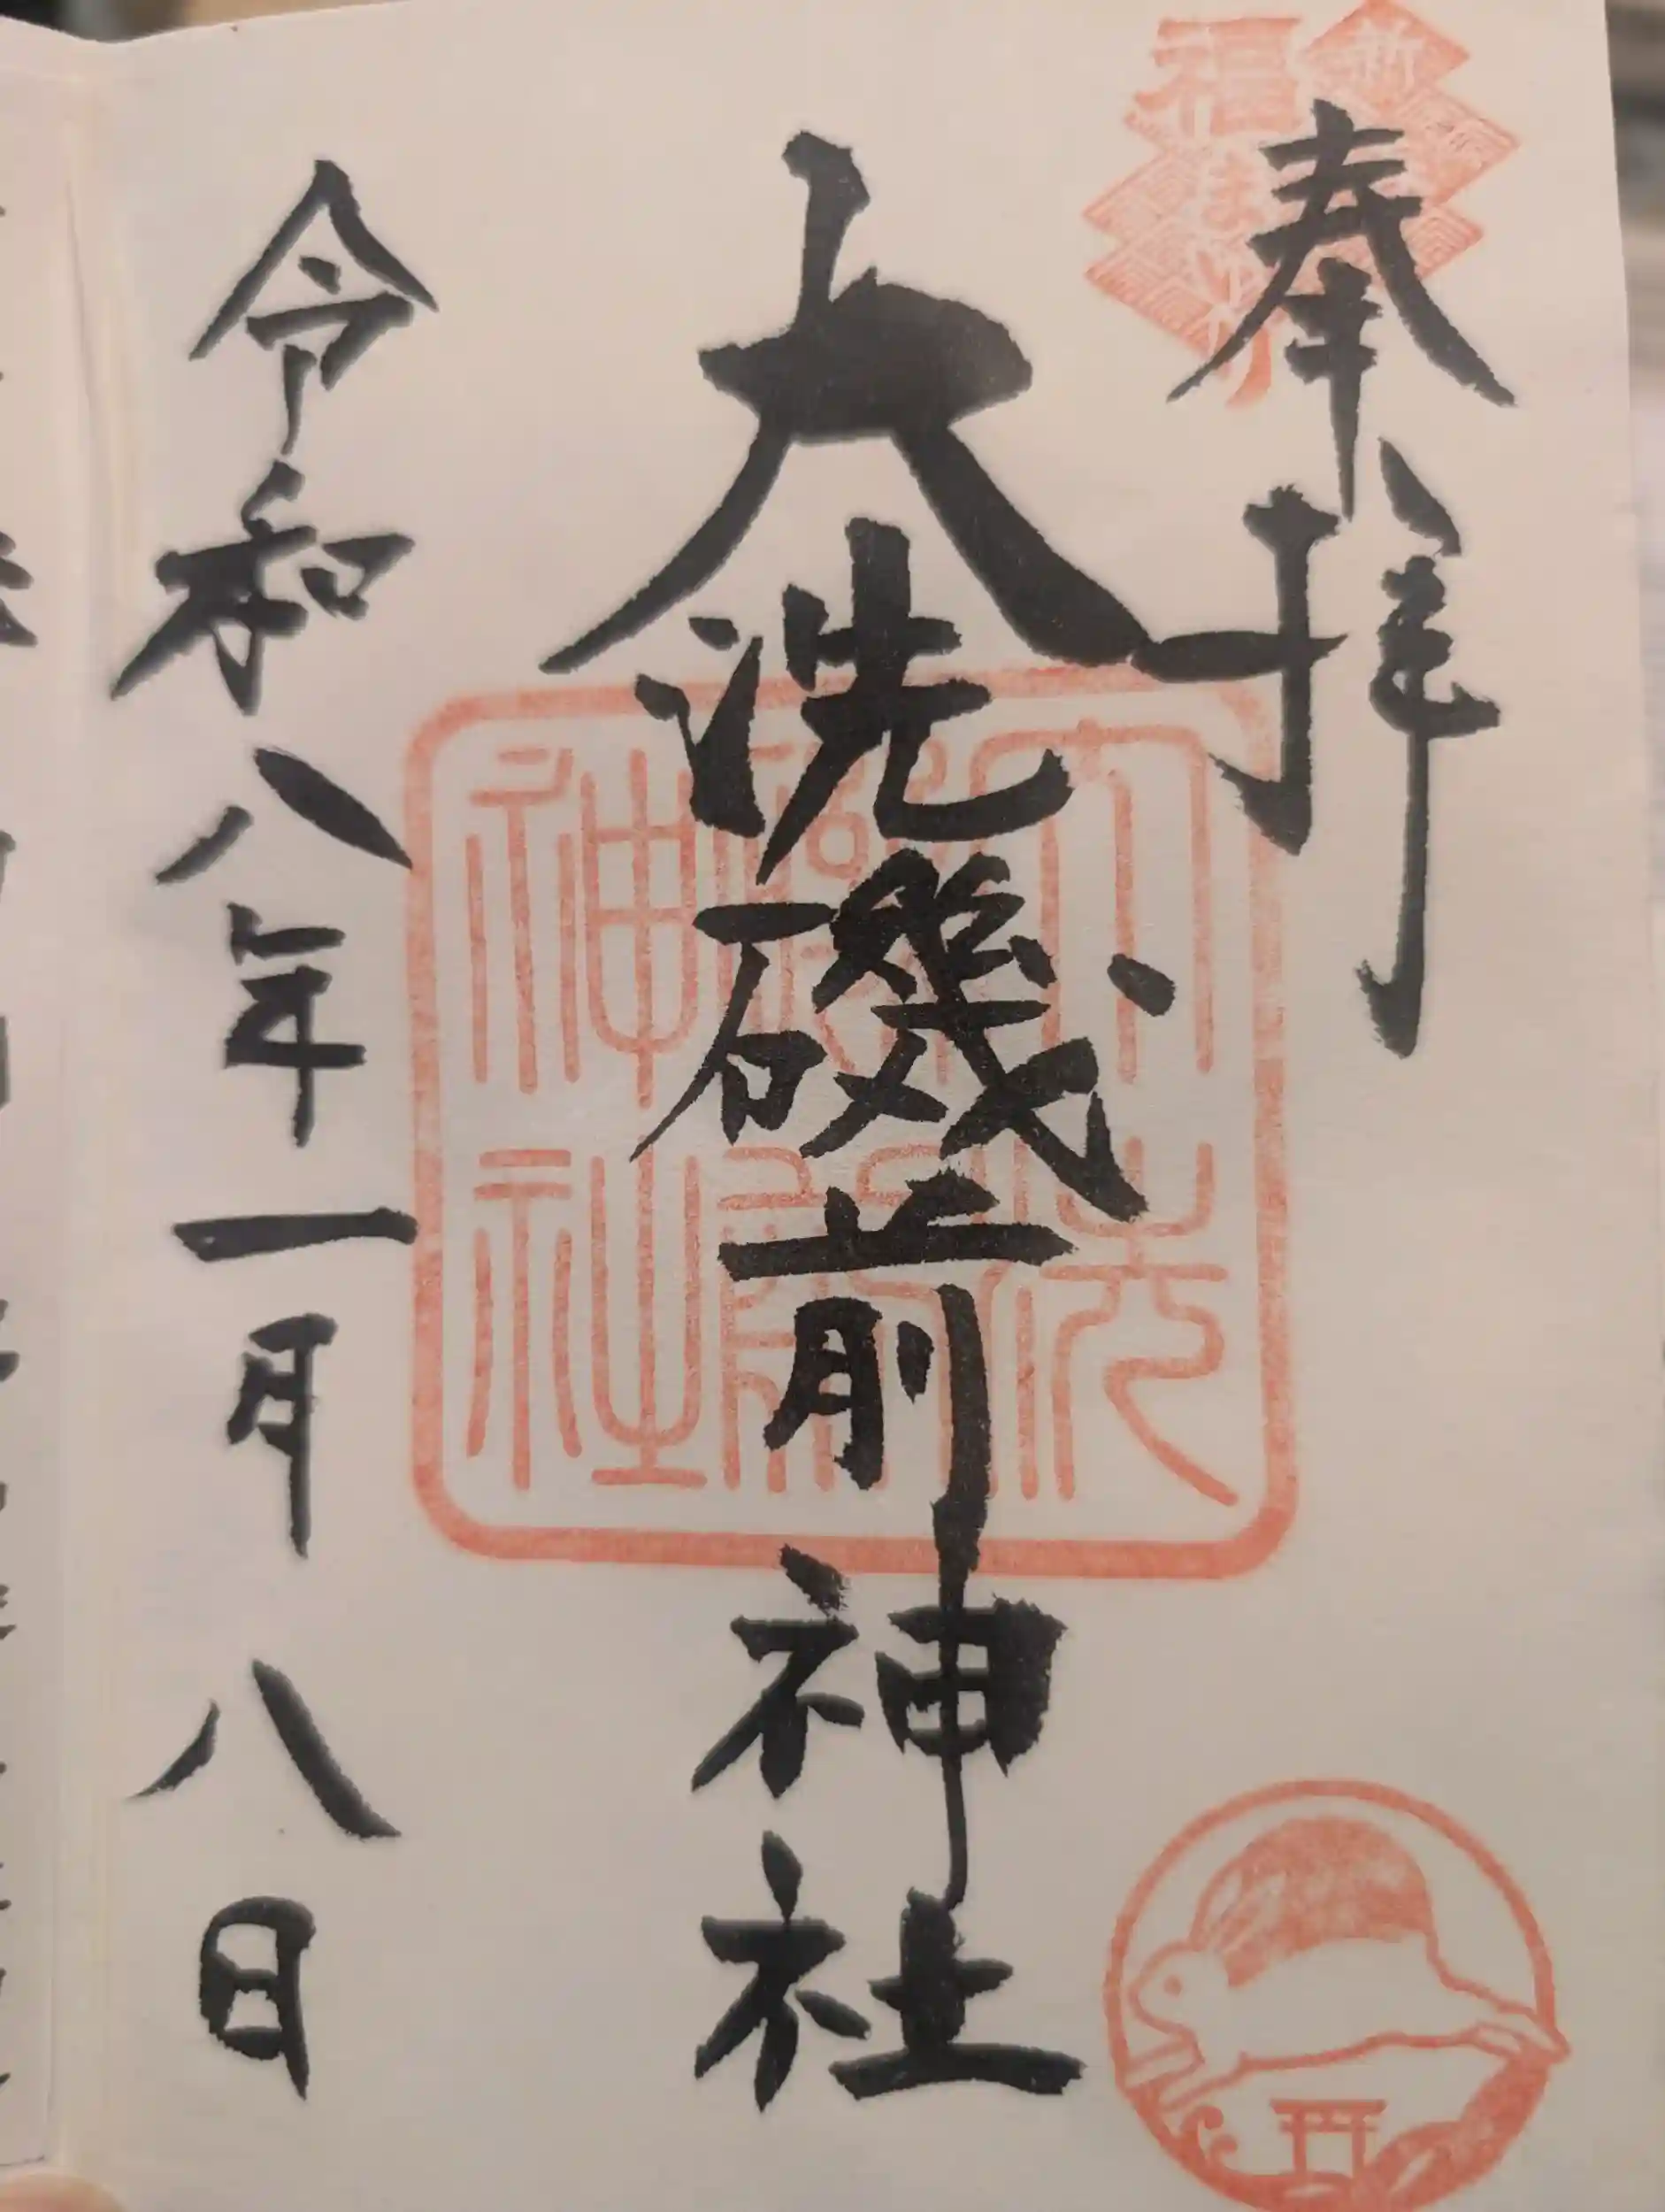 奉拝
大洗磯前神社
令和八年一月八日
福まいり
大洗
磯前
神社